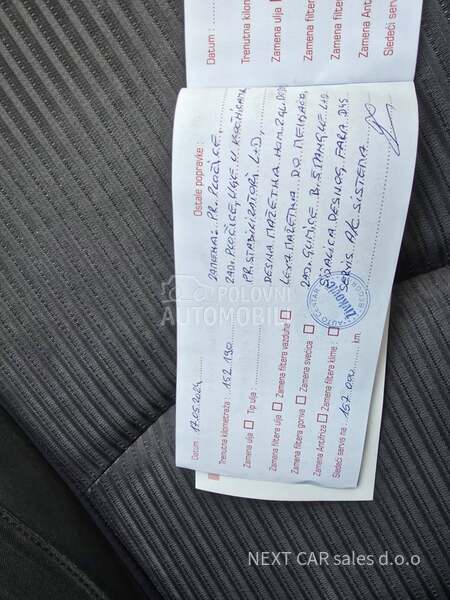 Datum :
Trenutna kilom
Zamena ulja
Zamena filtera
Zamena filte
Zamena Anti
Sledeći serv
Datum : 17.05.2024
Trenutna kilometraža : 152 190
Zamena ulja Tip ulja :
Zamena filtera ulja Zamena filtera vazduha
Zamena filtera goriva Zamena svećica
Zamena Antifriza Zamena filtera klime :
Sledeći servis na : 167 000 km.
Ostale popravke :
ZAMENA: PR. PLOČICE,
ZAD. PLOČICE, UGR. U KOČNICAMA
PR. STABILIZATORI L+D,
DESNA MAŽETNA HOM. ZGL.
LEVA MAŽETNA DO MENJAČA,
ZAD. GUMICE B. ŠTANGLE L+D
SIJALICA DESNOG FARA D4S
SERVIS A/C SISTEMA
AUTO CENTAR
ŽIVKOVIĆ
POLOVNI
AUTOMOBILI
NEXT CAR sales d.o.o